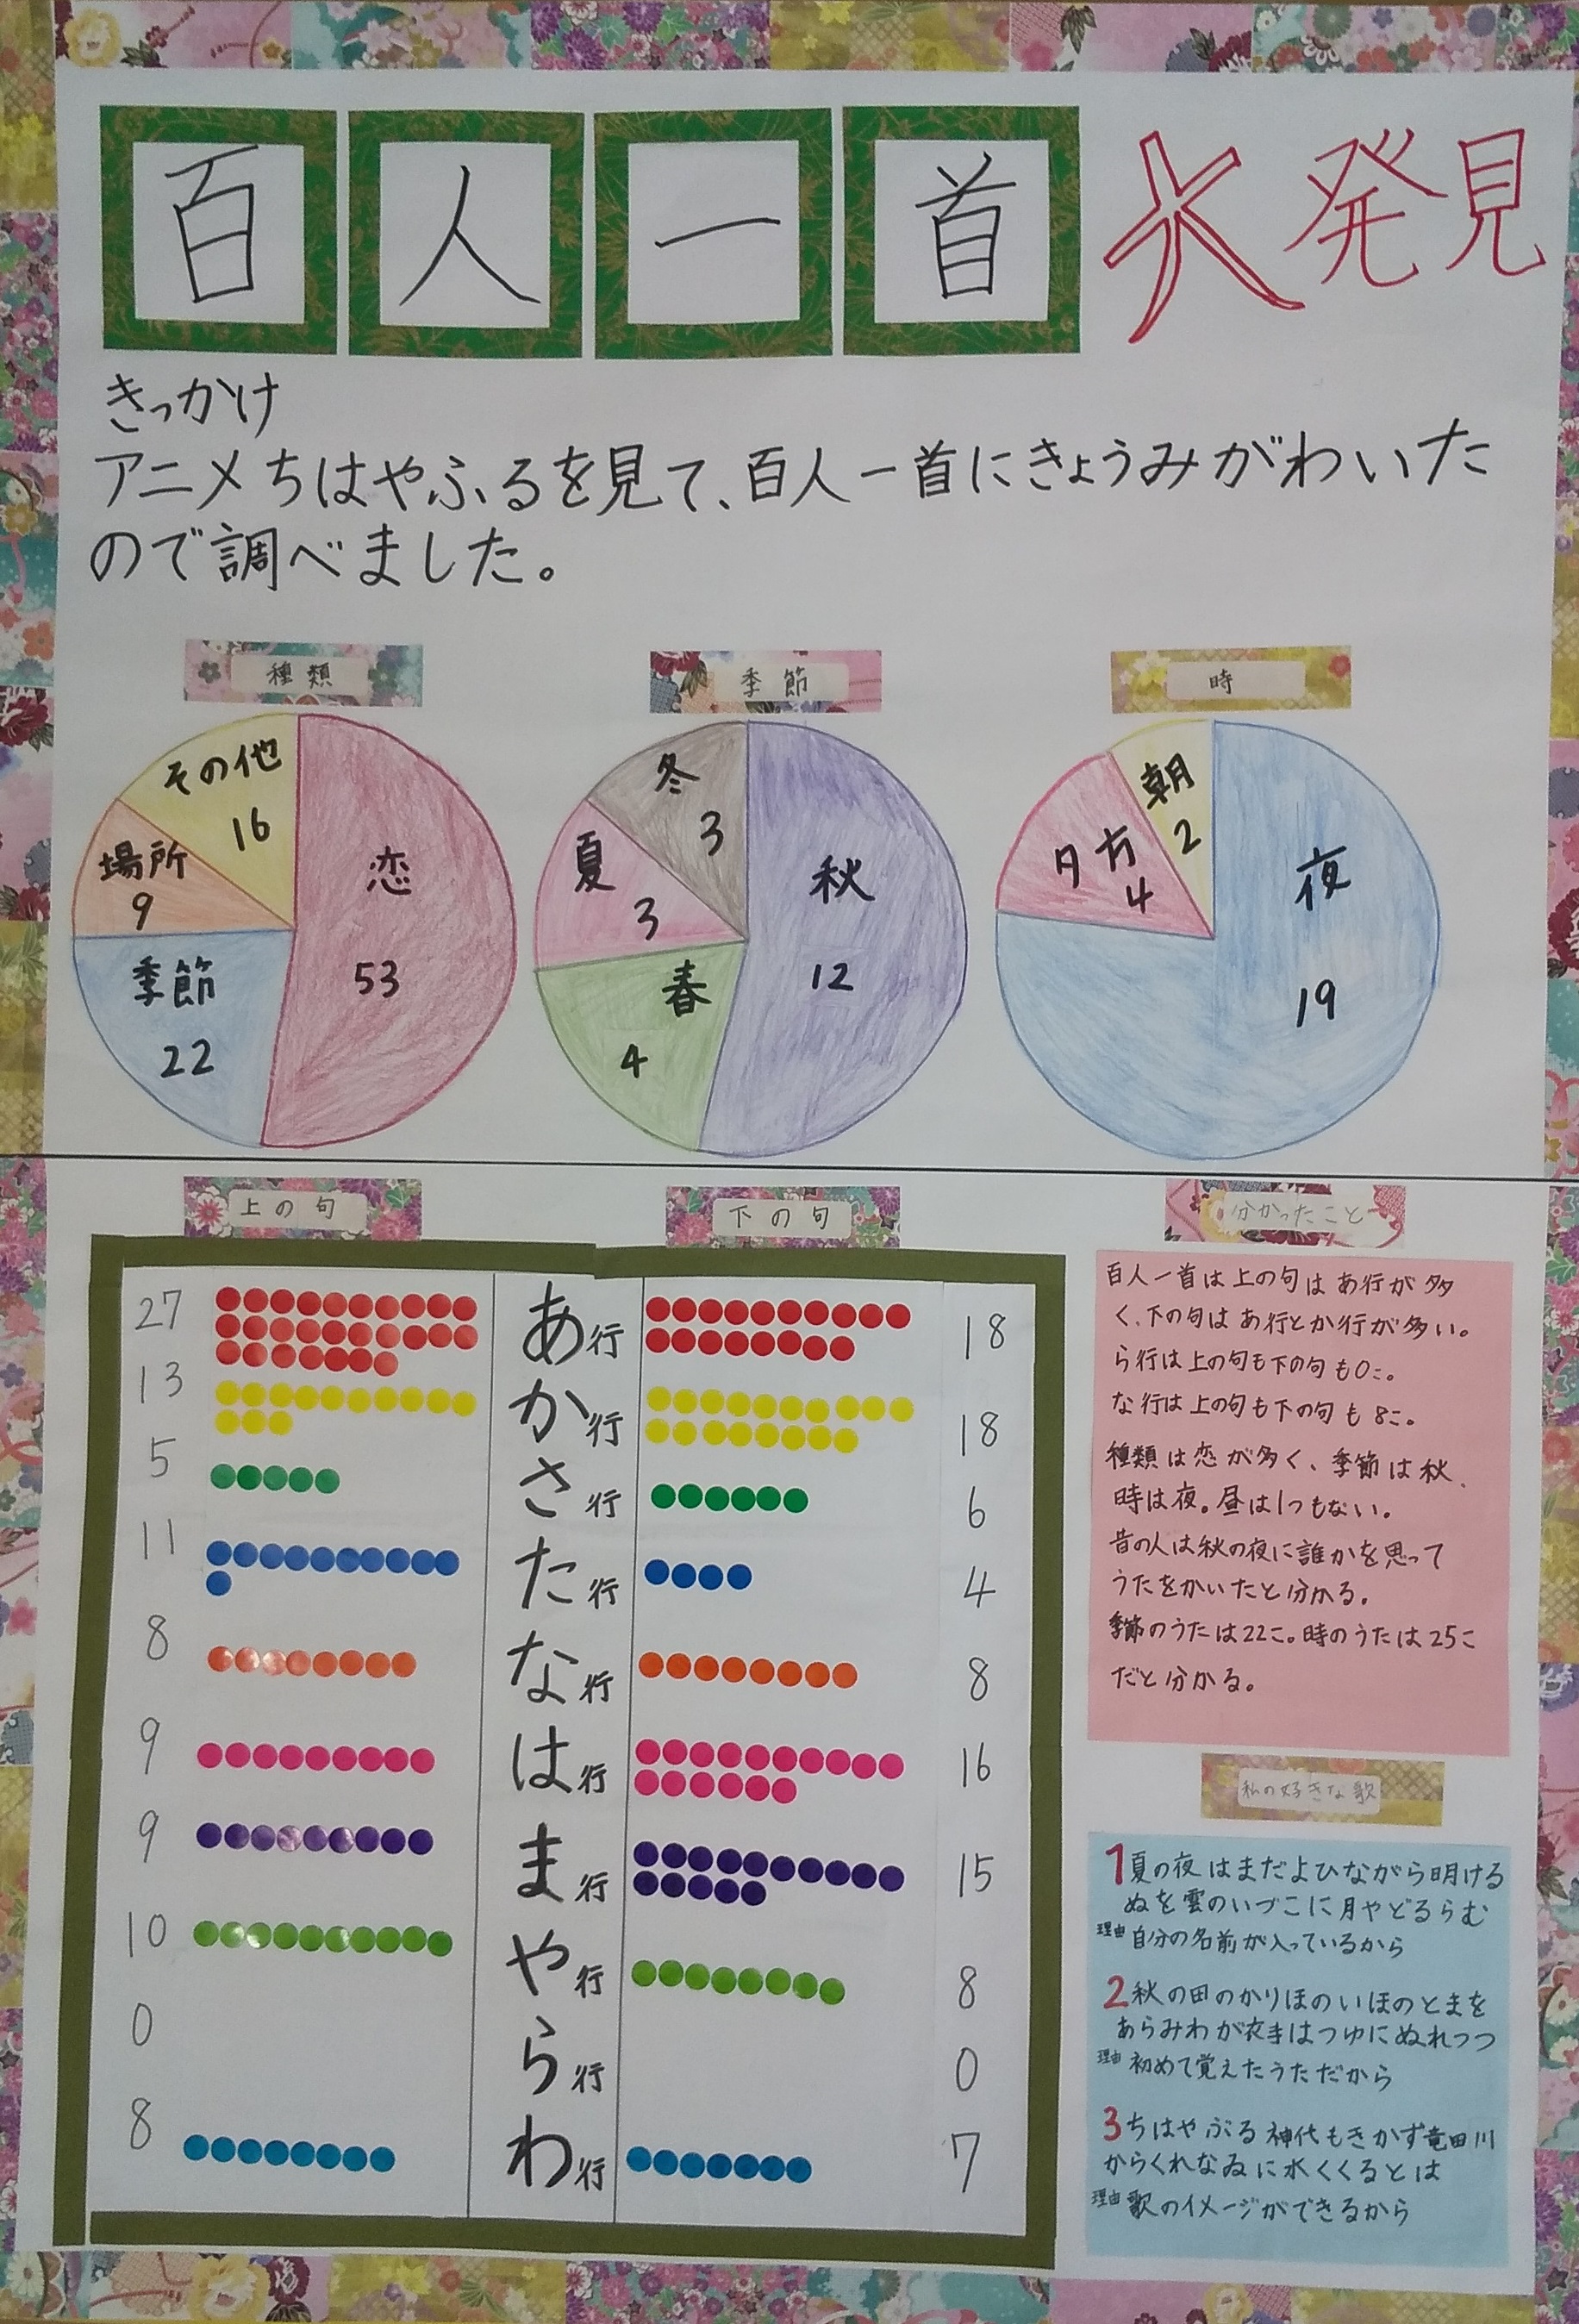 百人一首大発見
きっかけ
アニメちはやふるを見て、百人一首にきょうみがわいた
ので調べました。
種類
その他
16
場所
9
季節
22
恋
53
季節
冬
3
夏
3
春
4
秋
12
時
朝
2
夕方
4
夜
19
上の句
下の句
27 あ行 18
13 か行 18
5 さ行 6
11 た行 4
8 な行 8
9 は行 16
9 ま行 15
10 や行 8
0 ら行 0
8 わ行 7
分かったこと
百人一首は上の句はあ行が多
く、下の句はあ行とか行が多い。
ら行は上の句も下の句も0こ。
な行は上の句も下の句も8こ。
種類は恋が多く、季節は秋、
時は夜。昼は1つもない。
昔の人は秋の夜に誰かを思って
うたをかいたと分かる。
季節のうたは22こ。時のうたは25こ
だと分かる。
私の好きな歌
1夏の夜はまだよひながら明ける
ぬを雲のいづこに月やどるらむ
理由 自分の名前が入っているから
2秋の田のかりほのいほのとまを
あらみわが衣手はつゆにぬれつつ
理由 初めて覚えたうただから
3ちはやぶる神代もきかず竜田川
からくれなゐに水くくるとは
理由 歌のイメージができるから